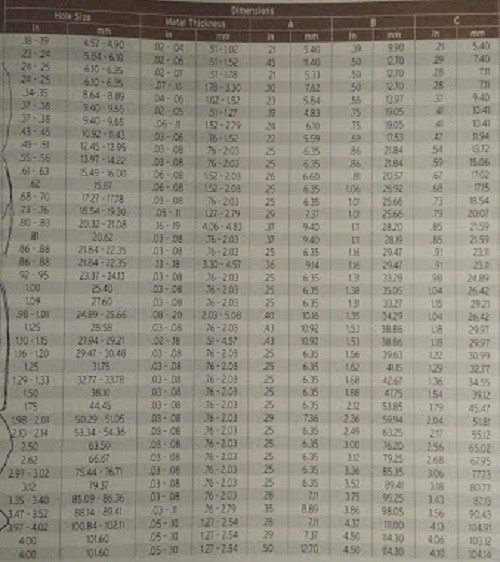 Dimensions
Hole Size Metal Thickness A B C
in mm in mm in mm in mm in mm
.18 - .19 4.57 - 4.90 .02 - .04 .51 - 1.02 .21 5.40 .39 9.90 .21 5.40
.23 - .24 5.84 - 6.10 .02 - .06 .51 - 1.52 .45 11.40 .50 12.70 .29 7.40
.24 - .25 6.10 - 6.35 .02 - .07 .51 - 1.78 .21 5.33 .50 12.70 .28 7.11
.24 - .25 6.10 - 6.35 .07 - .13 1.78 - 3.30 .30 7.62 .50 12.70 .28 7.11
.34 - .35 8.64 - 8.89 .04 - .06 1.02 - 1.52 .23 5.84 .55 13.97 .37 9.40
.37 - .38 9.40 - 9.65 .02 - .05 .51 - 1.27 .19 4.83 .75 19.05 .41 10.41
.37 - .38 9.40 - 9.65 .06 - .11 1.52 - 2.79 .24 6.10 .75 19.05 .41 10.41
.43 - .45 10.92 - 11.43 .03 - .06 .76 - 1.52 .22 5.59 .69 17.53 .47 11.94
.49 - .51 12.45 - 12.95 .03 - .08 .76 - 2.03 .25 6.35 .86 21.84 .54 13.72
.55 - .56 13.97 - 14.22 .03 - .08 .76 - 2.03 .25 6.35 .86 21.84 .59 15.06
.61 - .63 15.49 - 16.00 .06 - .08 1.52 - 2.03 .26 6.60 .81 20.57 .67 17.02
.62 15.87 .06 - .08 1.52 - 2.03 .25 6.35 1.06 26.92 .68 17.15
.68 - .70 17.27 - 17.78 .03 - .08 .76 - 2.03 .25 6.35 1.01 25.66 .73 18.54
.73 - .76 18.54 - 19.30 .05 - .11 1.27 - 2.79 .29 7.37 1.01 25.66 .79 20.07
.80 - .83 20.32 - 21.08 .16 - .19 4.06 - 4.83 .37 9.40 1.11 28.20 .85 21.59
.81 20.62 .03 - .08 .76 - 2.03 .37 9.40 1.11 28.19 .85 21.59
.86 - .88 21.84 - 22.35 .03 - .08 .76 - 2.03 .25 6.35 1.16 29.47 .91 23.11
.86 - .88 21.84 - 22.35 .13 - .18 3.30 - 4.57 .36 9.14 1.16 29.47 .91 23.11
.92 - .95 23.37 - 24.13 .03 - .08 .76 - 2.03 .25 6.35 1.31 33.28 .98 24.89
1.00 25.40 .03 - .08 .76 - 2.03 .25 6.35 1.38 35.05 1.04 26.42
1.09 27.60 .03 - .08 .76 - 2.03 .25 6.35 1.31 33.27 1.15 29.21
.98 - 1.01 24.89 - 25.66 .08 - .20 2.03 - 5.08 .40 10.16 1.35 34.29 1.04 26.42
1.125 28.58 .03 - .08 .76 - 2.03 .43 10.92 1.53 38.86 1.18 29.97
1.10 - 1.15 27.94 - 29.21 .02 - .18 .51 - 4.57 .43 10.92 1.53 38.86 1.18 29.97
1.16 - 1.20 29.47 - 30.48 .03 - .08 .76 - 2.03 .25 6.35 1.56 39.63 1.22 30.99
1.25 31.75 .03 - .08 .76 - 2.03 .25 6.35 1.62 41.15 1.29 32.77
1.29 - 1.33 32.77 - 33.78 .03 - .08 .76 - 2.03 .25 6.35 1.68 42.67 1.36 34.55
1.50 38.10 .03 - .08 .76 - 2.03 .25 6.35 1.88 47.75 1.54 39.12
1.75 44.45 .03 - .08 .76 - 2.03 .25 6.35 2.12 53.85 1.79 45.47
1.98 - 2.01 50.29 - 51.05 .03 - .08 .76 - 2.03 .29 7.36 2.36 59.94 2.04 51.81
2.10 - 2.14 53.34 - 54.36 .03 - .08 .76 - 2.03 .25 6.35 2.49 63.25 2.17 55.12
2.50 63.50 .03 - .08 .76 - 2.03 .25 6.35 3.00 76.20 2.56 65.02
2.62 66.67 .03 - .08 .76 - 2.03 .25 6.35 3.12 79.25 2.68 67.95
2.97 - 3.02 75.44 - 76.71 .03 - .08 .76 - 2.03 .25 6.35 3.36 85.35 3.06 77.73
3.12 79.37 .03 - .08 .76 - 2.03 .25 6.35 3.52 89.41 3.18 80.77
3.35 - 3.40 85.09 - 86.36 .03 - .08 .76 - 2.03 .28 7.11 3.75 95.25 3.43 87.13
3.47 - 3.52 88.14 - 89.41 .03 - .11 .76 - 2.79 .35 8.89 3.86 98.05 3.56 90.43
3.97 - 4.02 100.84 - 102.11 .05 - .10 1.27 - 2.54 .28 7.11 4.37 111.00 4.13 104.91
4.00 101.60 .05 - .10 1.27 - 2.54 .29 7.37 4.50 114.30 4.06 103.12
4.00 101.60 .05 - .10 1.27 - 2.54 .50 12.70 4.50 114.30 4.10 104.14